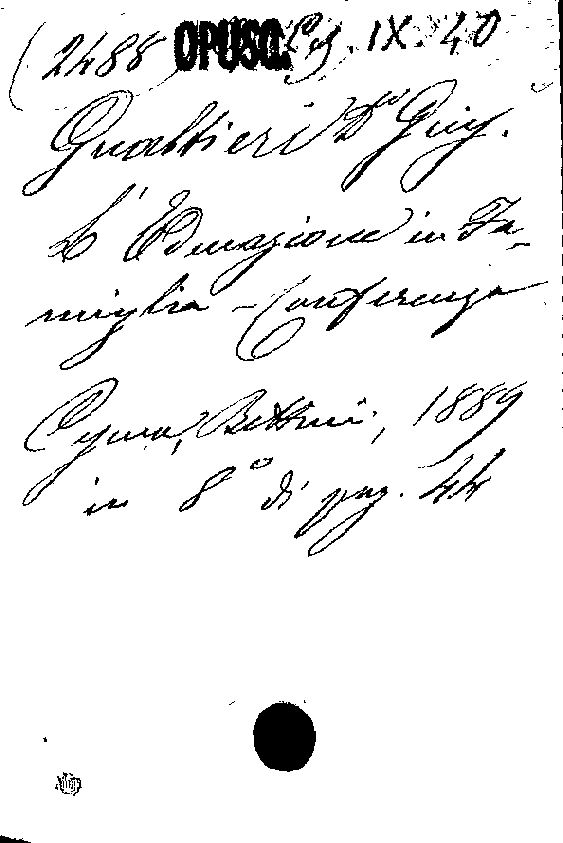 (2488) OPUSC. IX. 40
Gualtieri D.r Gius.
L'Educazione in Fa-
miglia - Conferenza
Bettini, 1889
in 8° di pag. 44